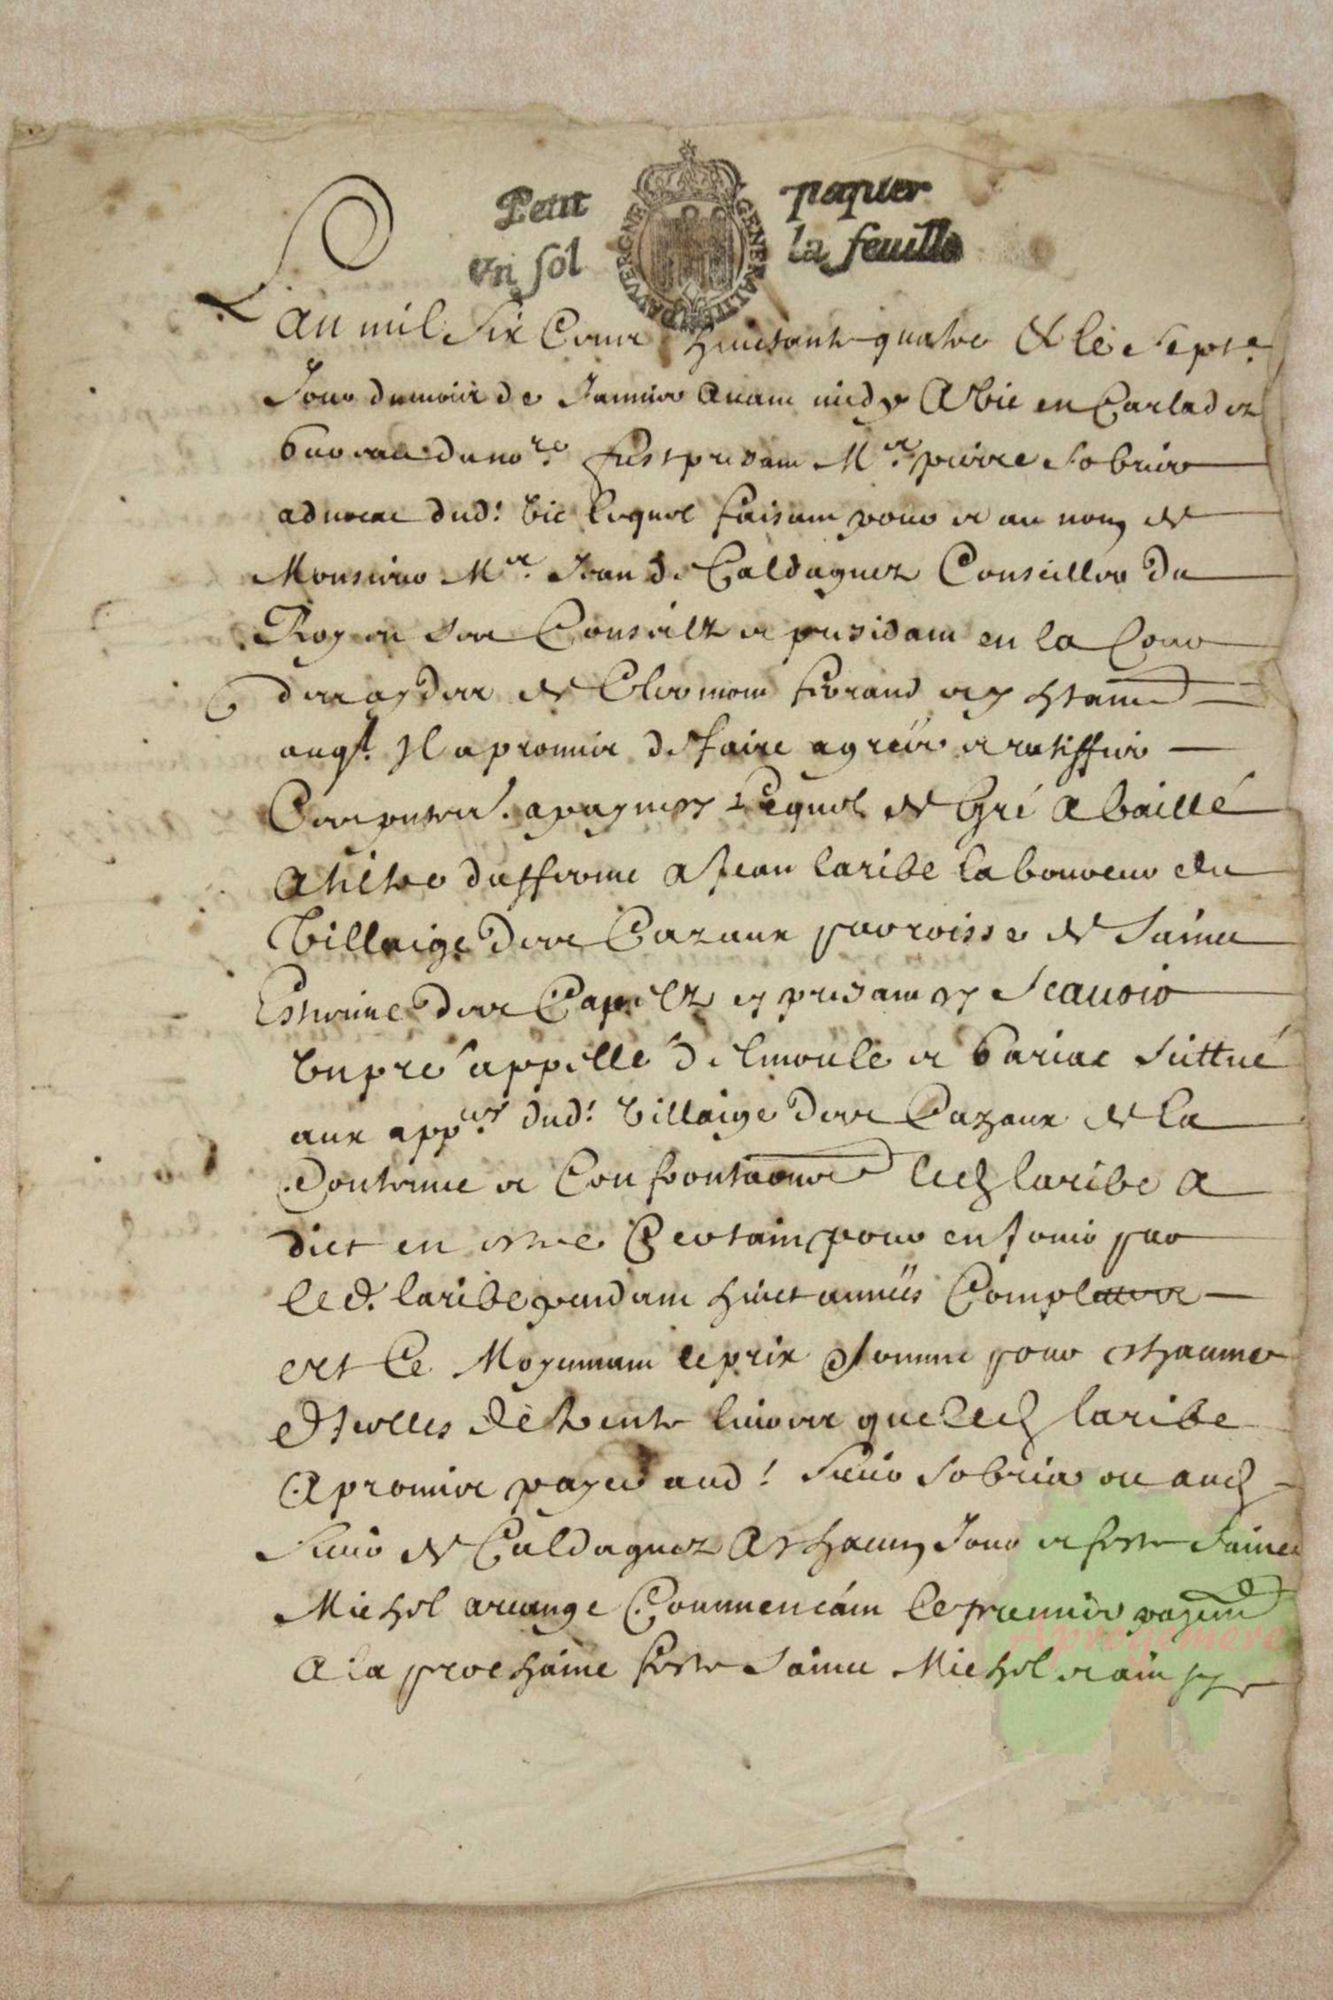 Petit papier
un sol la feuille
GENERALITE D'AUVERGNE
L'an mil six cens huictante quatre & le sept.e
Jour du mois de Janvier avant midy A Vic en Carladez
fust presant M.re pierre Sobrier
advocat dud.t Vic lequel faisant pour et au nom de
Monsieur M.re Jean de Caldaguez Conseiller du
Roy en ses Conseilz et presidant en la Cour
des aydes de Clermont ferrand
Il a promis de faire agreer et ratiffier
Ces lequel de Gré A baillé
A tiltre d'afferme A Jean laribe laboureur du
Villaige des Cazaux parroisse de Sainct
Estienne des Capelz presant Scavoir
Un pré appellé del moule et bariac scittué
aux app.ces dud.t Villaige des Cazaux de la
Contenue et Confrontaons led laribe A
dict en estre Certain pour en Jouir par
led. laribe pendant huict années Complettes
et ce Moyennant le prix & somme pour chacune
d'Icelles de trente livres que led laribe
A promis payer aud.t Sieur Sobrier ou aud
Sieur de Caldaguez A chacun Jour et feste Sainct
Michel arcange Commencant le premier payemt
A la prochaine feste Sainct Michel et ainsy
Aprogemere